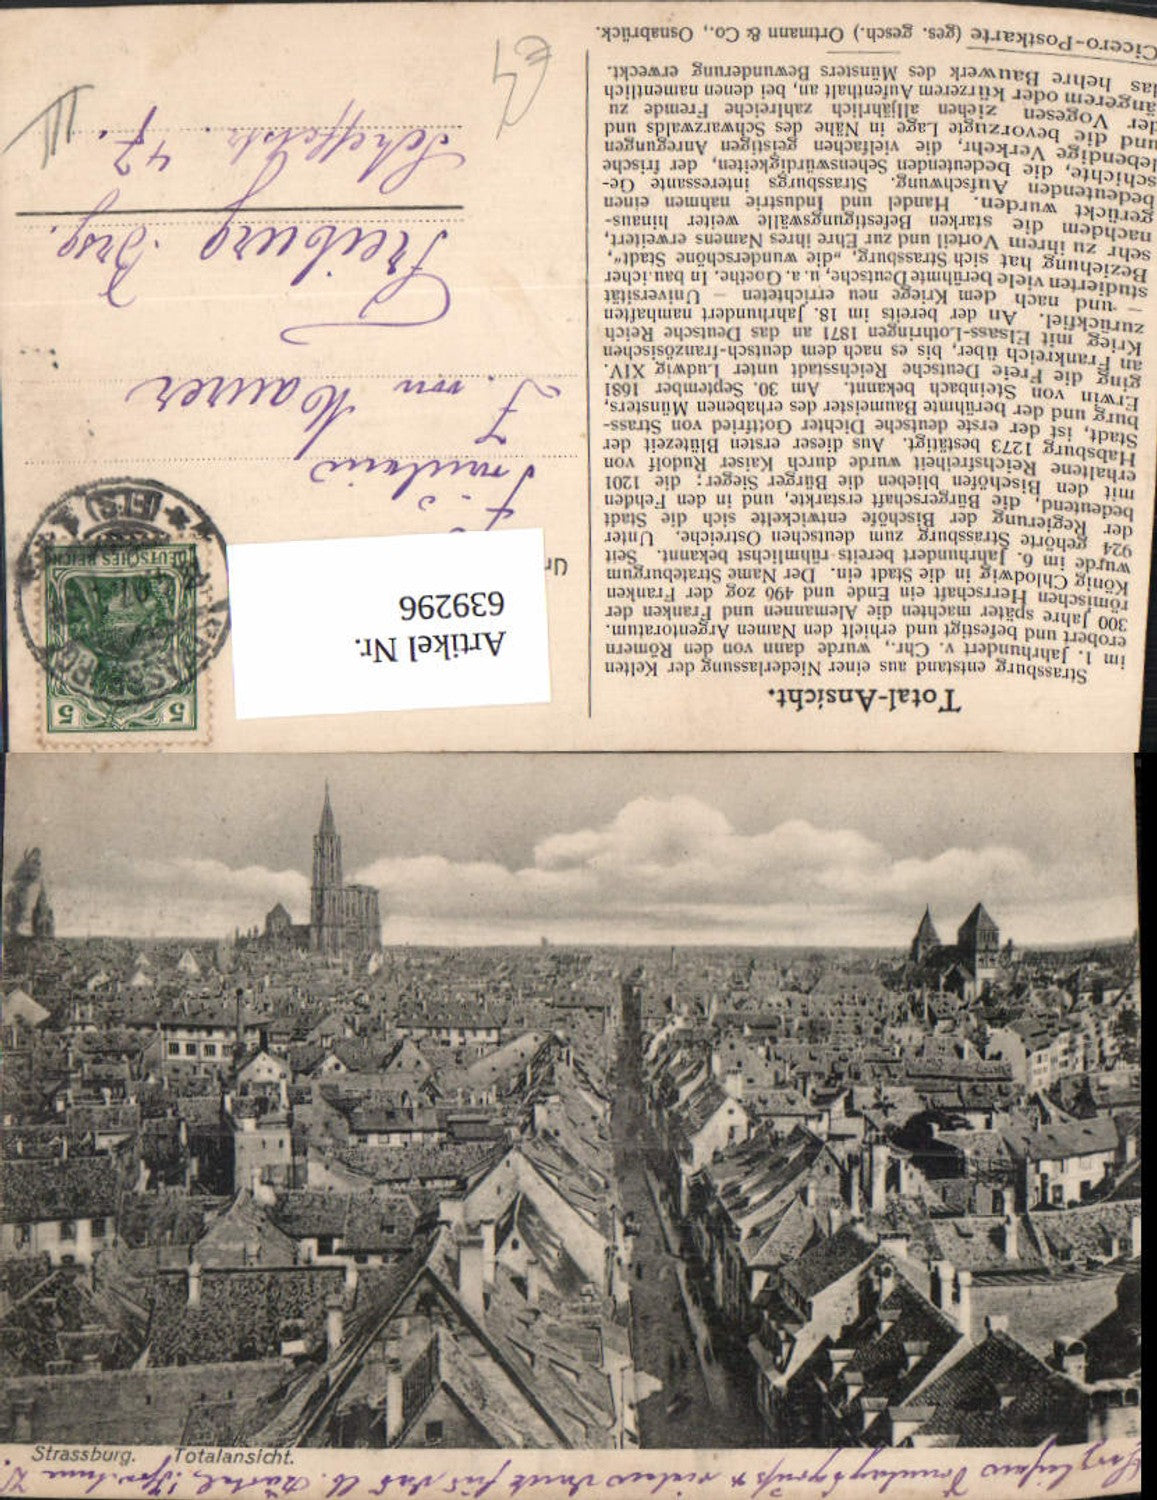 Total-Ansicht.
Strassburg entstand aus einer Niederlassung der Kelten
im 1. Jahrhundert v. Chr., wurde dann von den Römern
erobert und befestigt und erhielt den Namen Argentoratum.
300 Jahre später machten die Alemannen und Franken der
römischen Herrschaft ein Ende und 496 zog der Franken
König Chlodwig in die Stadt ein. Der Name Strateburgum
wurde im 6. Jahrhundert bereits rühmlichst bekannt. Seit
924 gehörte Strassburg zum deutschen Ostreiche. Unter
der Regierung der Bischöfe entwickelte sich die Stadt
bedeutend, die Bürgerschaft erstarkte, und in den Fehden
mit den Bischöfen blieben die Bürger Sieger; die 1201
erhaltene Reichsfreiheit wurde durch Kaiser Rudolf von
Habsburg 1273 bestätigt. Aus dieser ersten Blütezeit der
Stadt, ist der erste deutsche Dichter Gottfried von Strass-
burg und der berühmte Baumeister des erhabenen Münsters,
Erwin von Steinbach bekannt. Am 30. September 1681
ging die Freie Deutsche Reichsstadt unter Ludwig XIV.
an Frankreich über, bis es nach dem deutsch-französischen
Krieg mit Elsass-Lothringen 1871 an das Deutsche Reich
zurückfiel. An der bereits im 18. Jahrhundert namhaften
— und nach dem Kriege neu errichteten — Universität
studierten viele berühmte Deutsche, u. a. Goethe. In baulicher
Beziehung hat sich Strassburg, „die wunderschöne Stadt“,
sehr zu ihrem Vorteil und zur Ehre ihres Namens erweitert,
nachdem die starken Befestigungswälle weiter hinaus-
gerückt wurden. Handel und Industrie nahmen einen
bedeutenden Aufschwung. Strassburgs interessante Ge-
schichte, die bedeutenden Sehenswürdigkeiten, der frische
lebendige Verkehr, die vielfachen geistigen Anregungen
und die bevorzugte Lage in Nähe des Schwarzwalds und
der Vogesen ziehen alljährlich zahlreiche Fremde zu
längerem oder kürzerem Aufenthalt an, bei denen namentlich
das hehre Bauwerk des Münsters Bewunderung erweckt.
Cicero-Postkarte (ges. gesch.) Ortmann & Co., Osnabrück.
5 5
DEUTSCHES REICH
(ELS)
Artikel Nr.
639296
Fräulein
F. von Maurer
Freiburg Brsg.
Scheffelstr. 47.
Strassburg. Totalansicht.